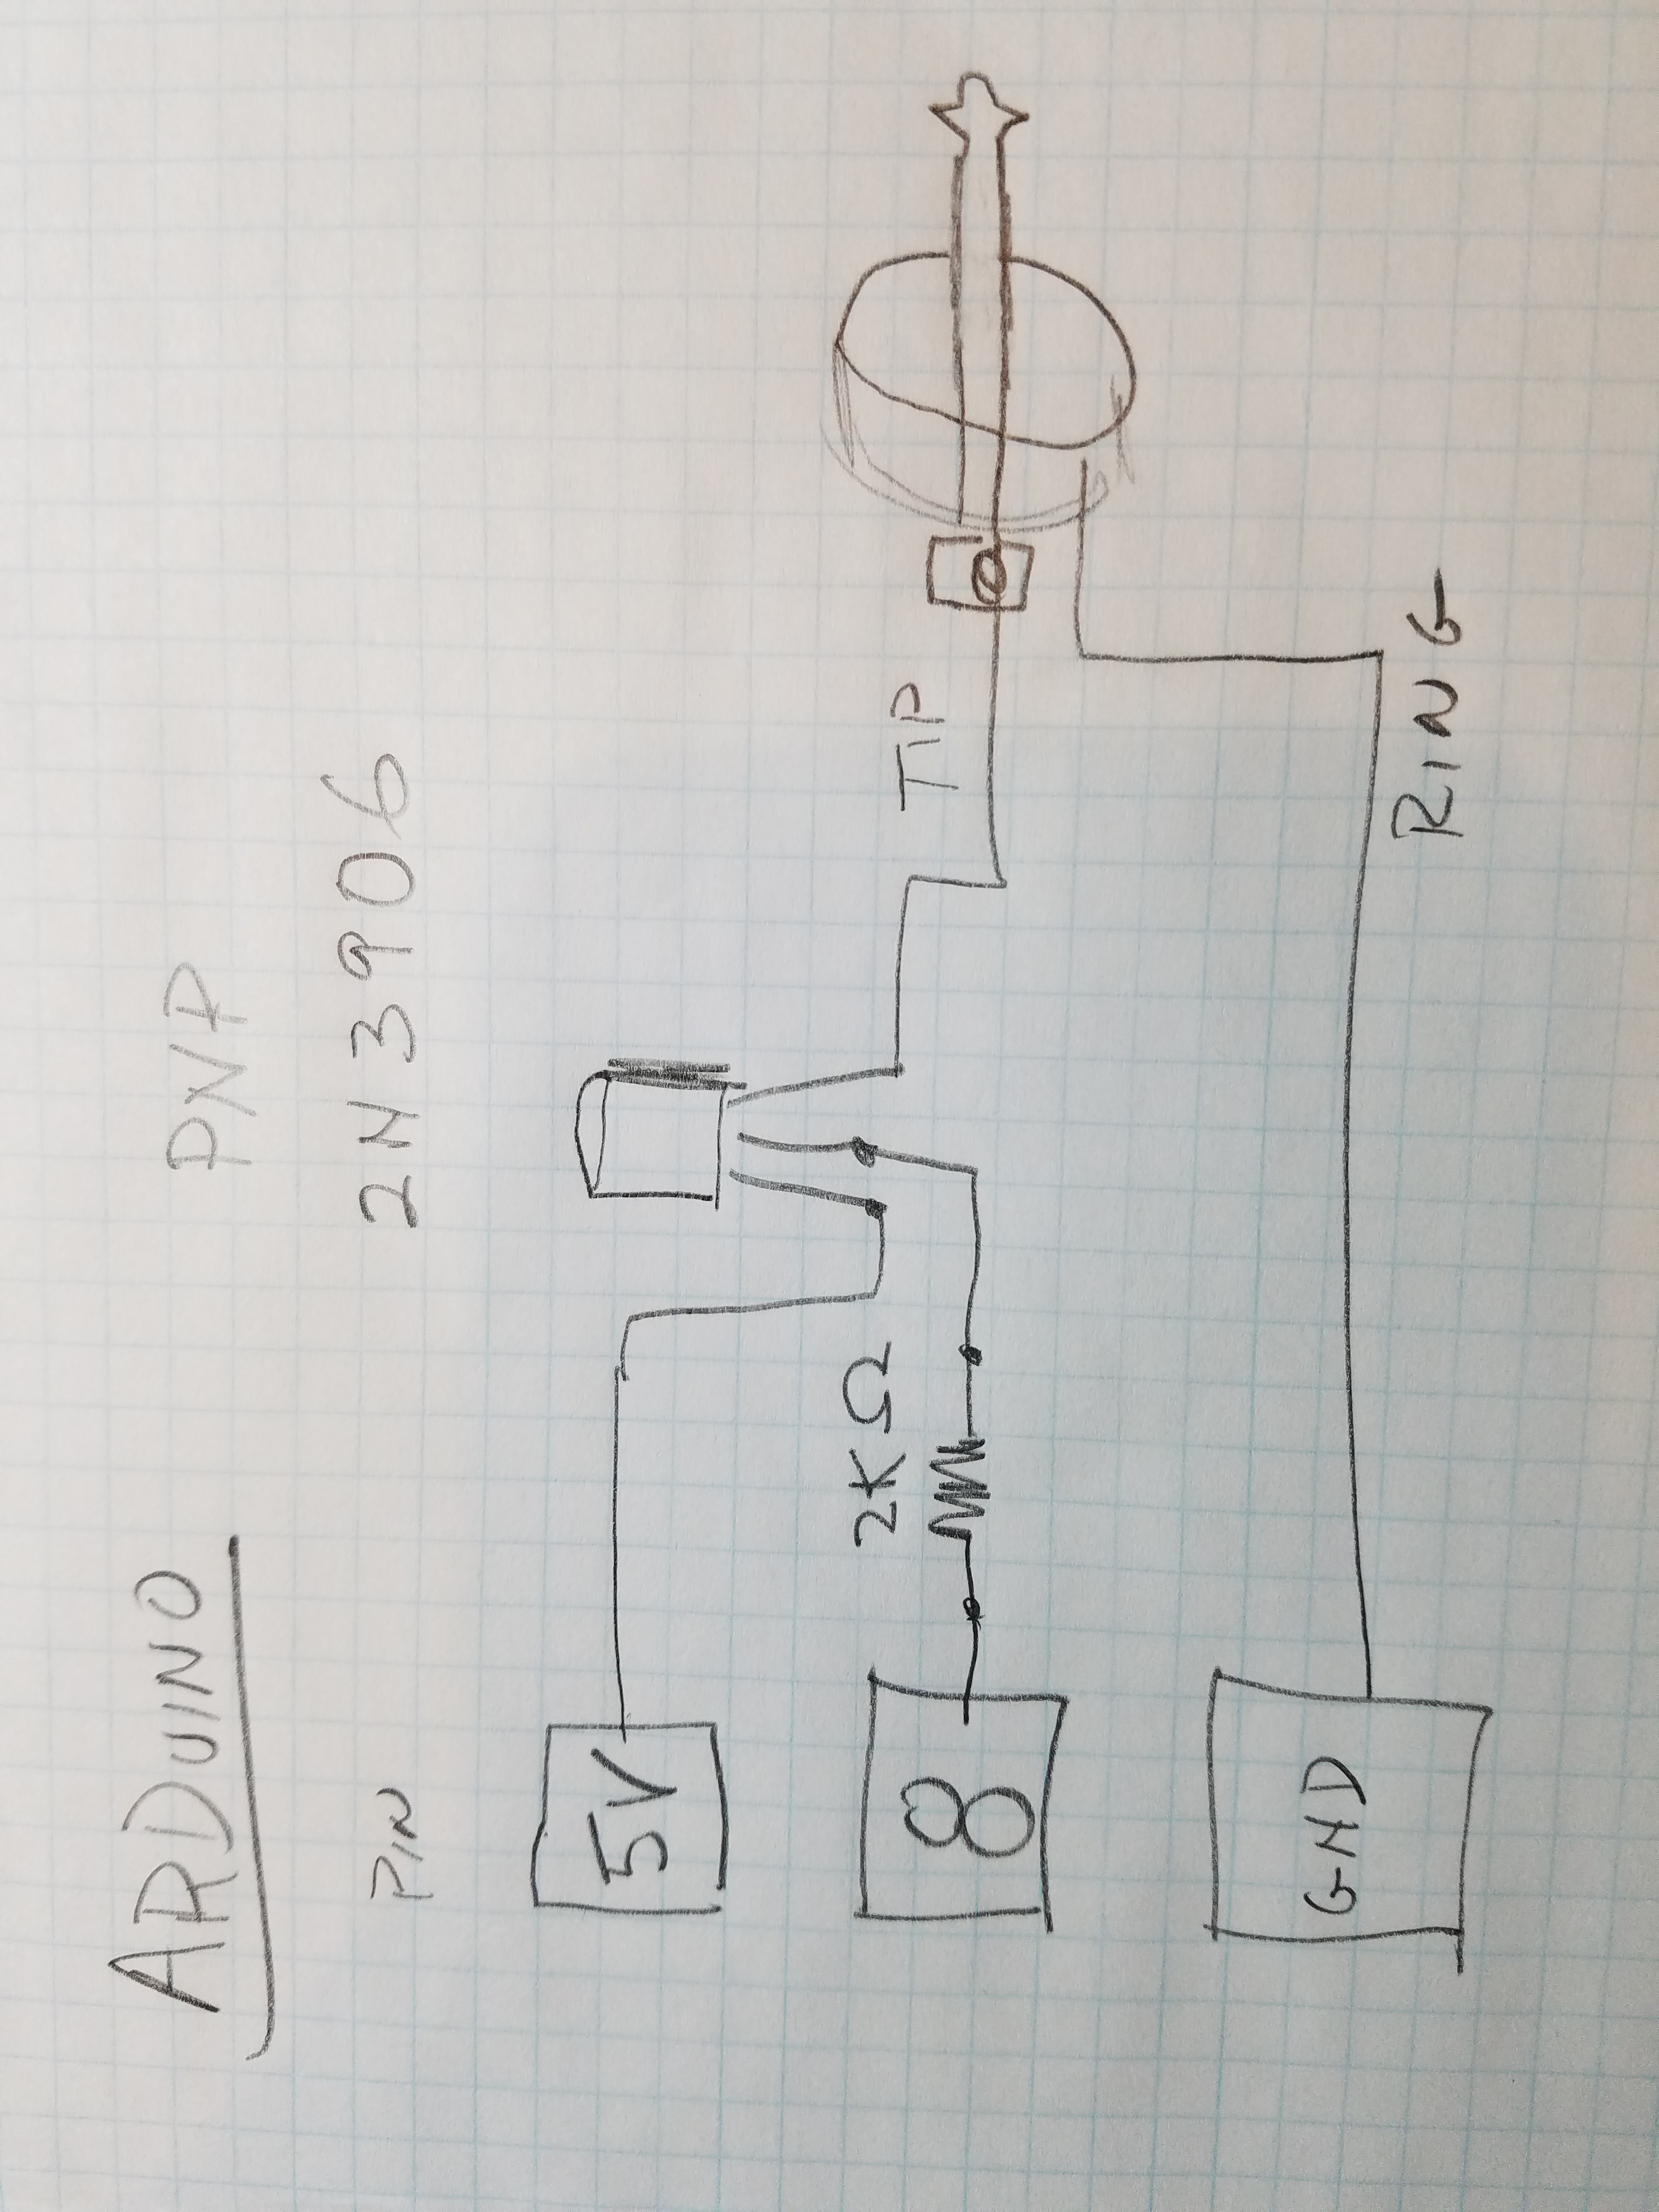 ARDUINO
PNP
2N3906
PIN
5V
2KΩ
8
TIP
GND
RING